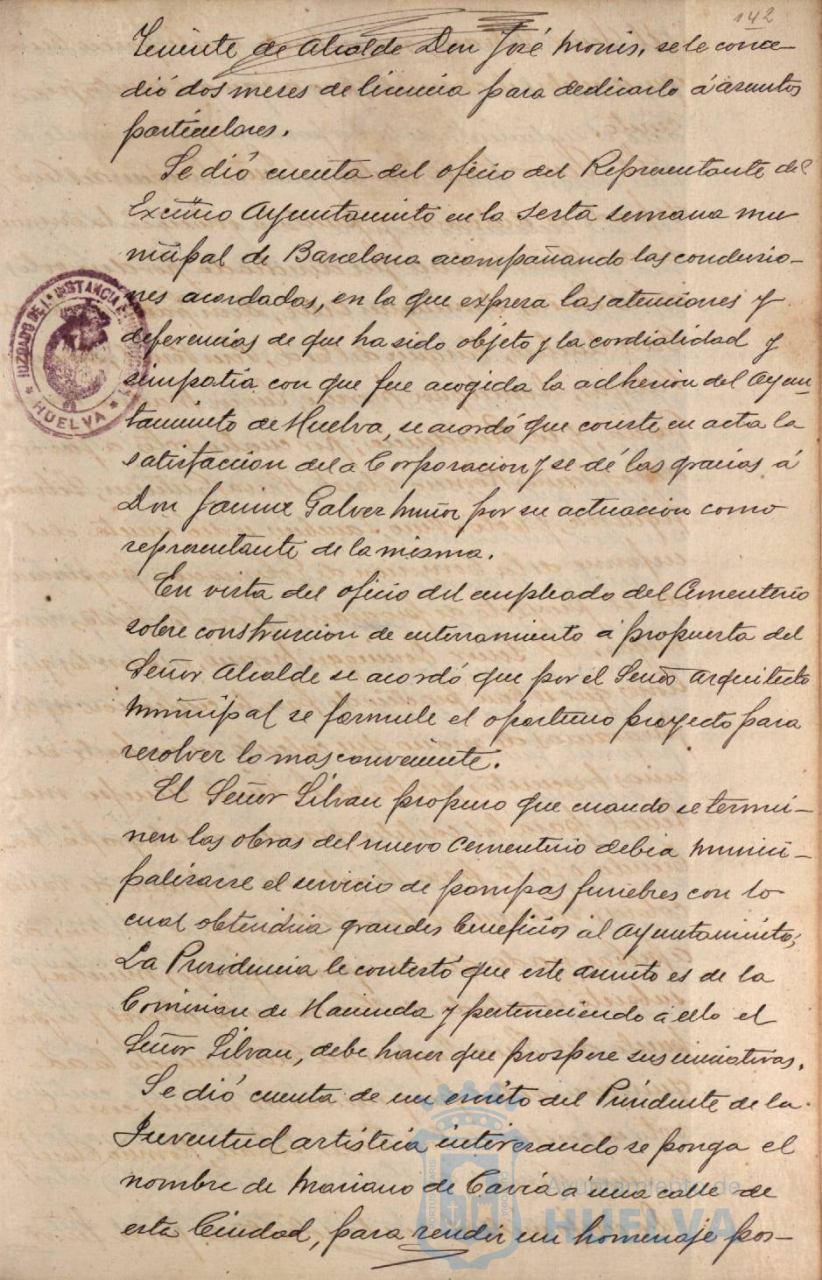 142
Teniente de Alcalde Don José Monis, se le conce-
dió dos meses de licencia para dedicarlo á asuntos
particulares.
Se dió cuenta del oficio del Representante del
Excmo Ayuntamiento en la sesta semana mu-
nicipal de Barcelona acompañando las conclusio-
nes acordadas, en la que expresa las atenciones y
deferencias de que ha sido objeto y la cordialidad y
simpatia con que fue acogida la adhesion del Ayun-
tamiento de Huelva, se acordó que conste en acta la
satisfaccion de la Corporacion y se dé las gracias á
Don Galvez Muñoz por su actuacion como
representante de la misma.
En vista del oficio del empleado del Cementerio
sobre construccion de enterramiento á propuesta del
Señor Alcalde se acordó que por el Señor Arquitecto
Municipal se formule el oportuno proyecto para
resolver lo mas conveniente.
El Señor Silvan propuso que cuando se termi-
nen las obras del nuevo Cementerio debia munici-
palizarse el servicio de pompas funebres con lo
cual obtendria grandes beneficios el Ayuntamiento;
La Presidencia le contestó que este asunto es de la
Comision de Hacienda y perteneciendo á ello el
Señor Silvan, debe hacer que prospere sus iniciativas.
Se dió cuenta de un escrito del Presidente de la
Juventud artistica interesando se ponga el
nombre de Mariano de Cavia á una calle de
esta Ciudad, para rendir un homenaje pos-
JUZGADO DE 1ª INSTANCIA
HUELVA
Ayuntamiento de
HUELVA